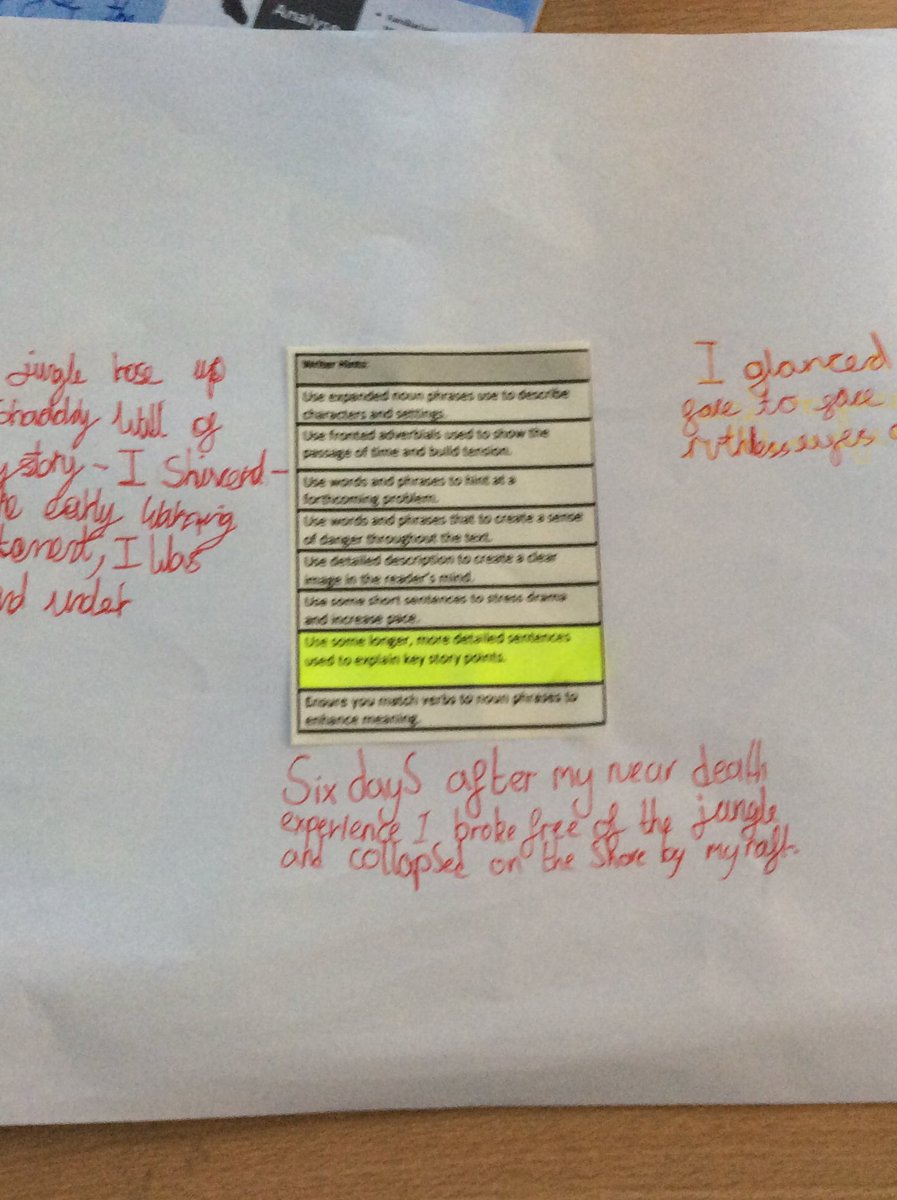 Analyse
jungle rose up
Shaddy Wall of
ystory - I Shivered -
he early warning
I was
nd under
I glanced
to
ruthless eyes
Writer Hints
Use expanded noun phrases use to describe
characters and settings.
Use fronted adverbials used to show the
passage of time and build tension.
Use words and phrases to hint at a
forthcoming problem.
Use words and phrases that to create a sense
of danger throughout the text.
Use detailed description to create a clear
image in the reader's mind.
Use some short sentences to stress drama
and increase pace.
Use some longer, more detailed sentences
used to explain key story points.
Ensure you match verbs to noun phrases to
enhance meaning.
Six days after my near death
experience I broke free of the jungle
and collapsed on the Shore by my raft.